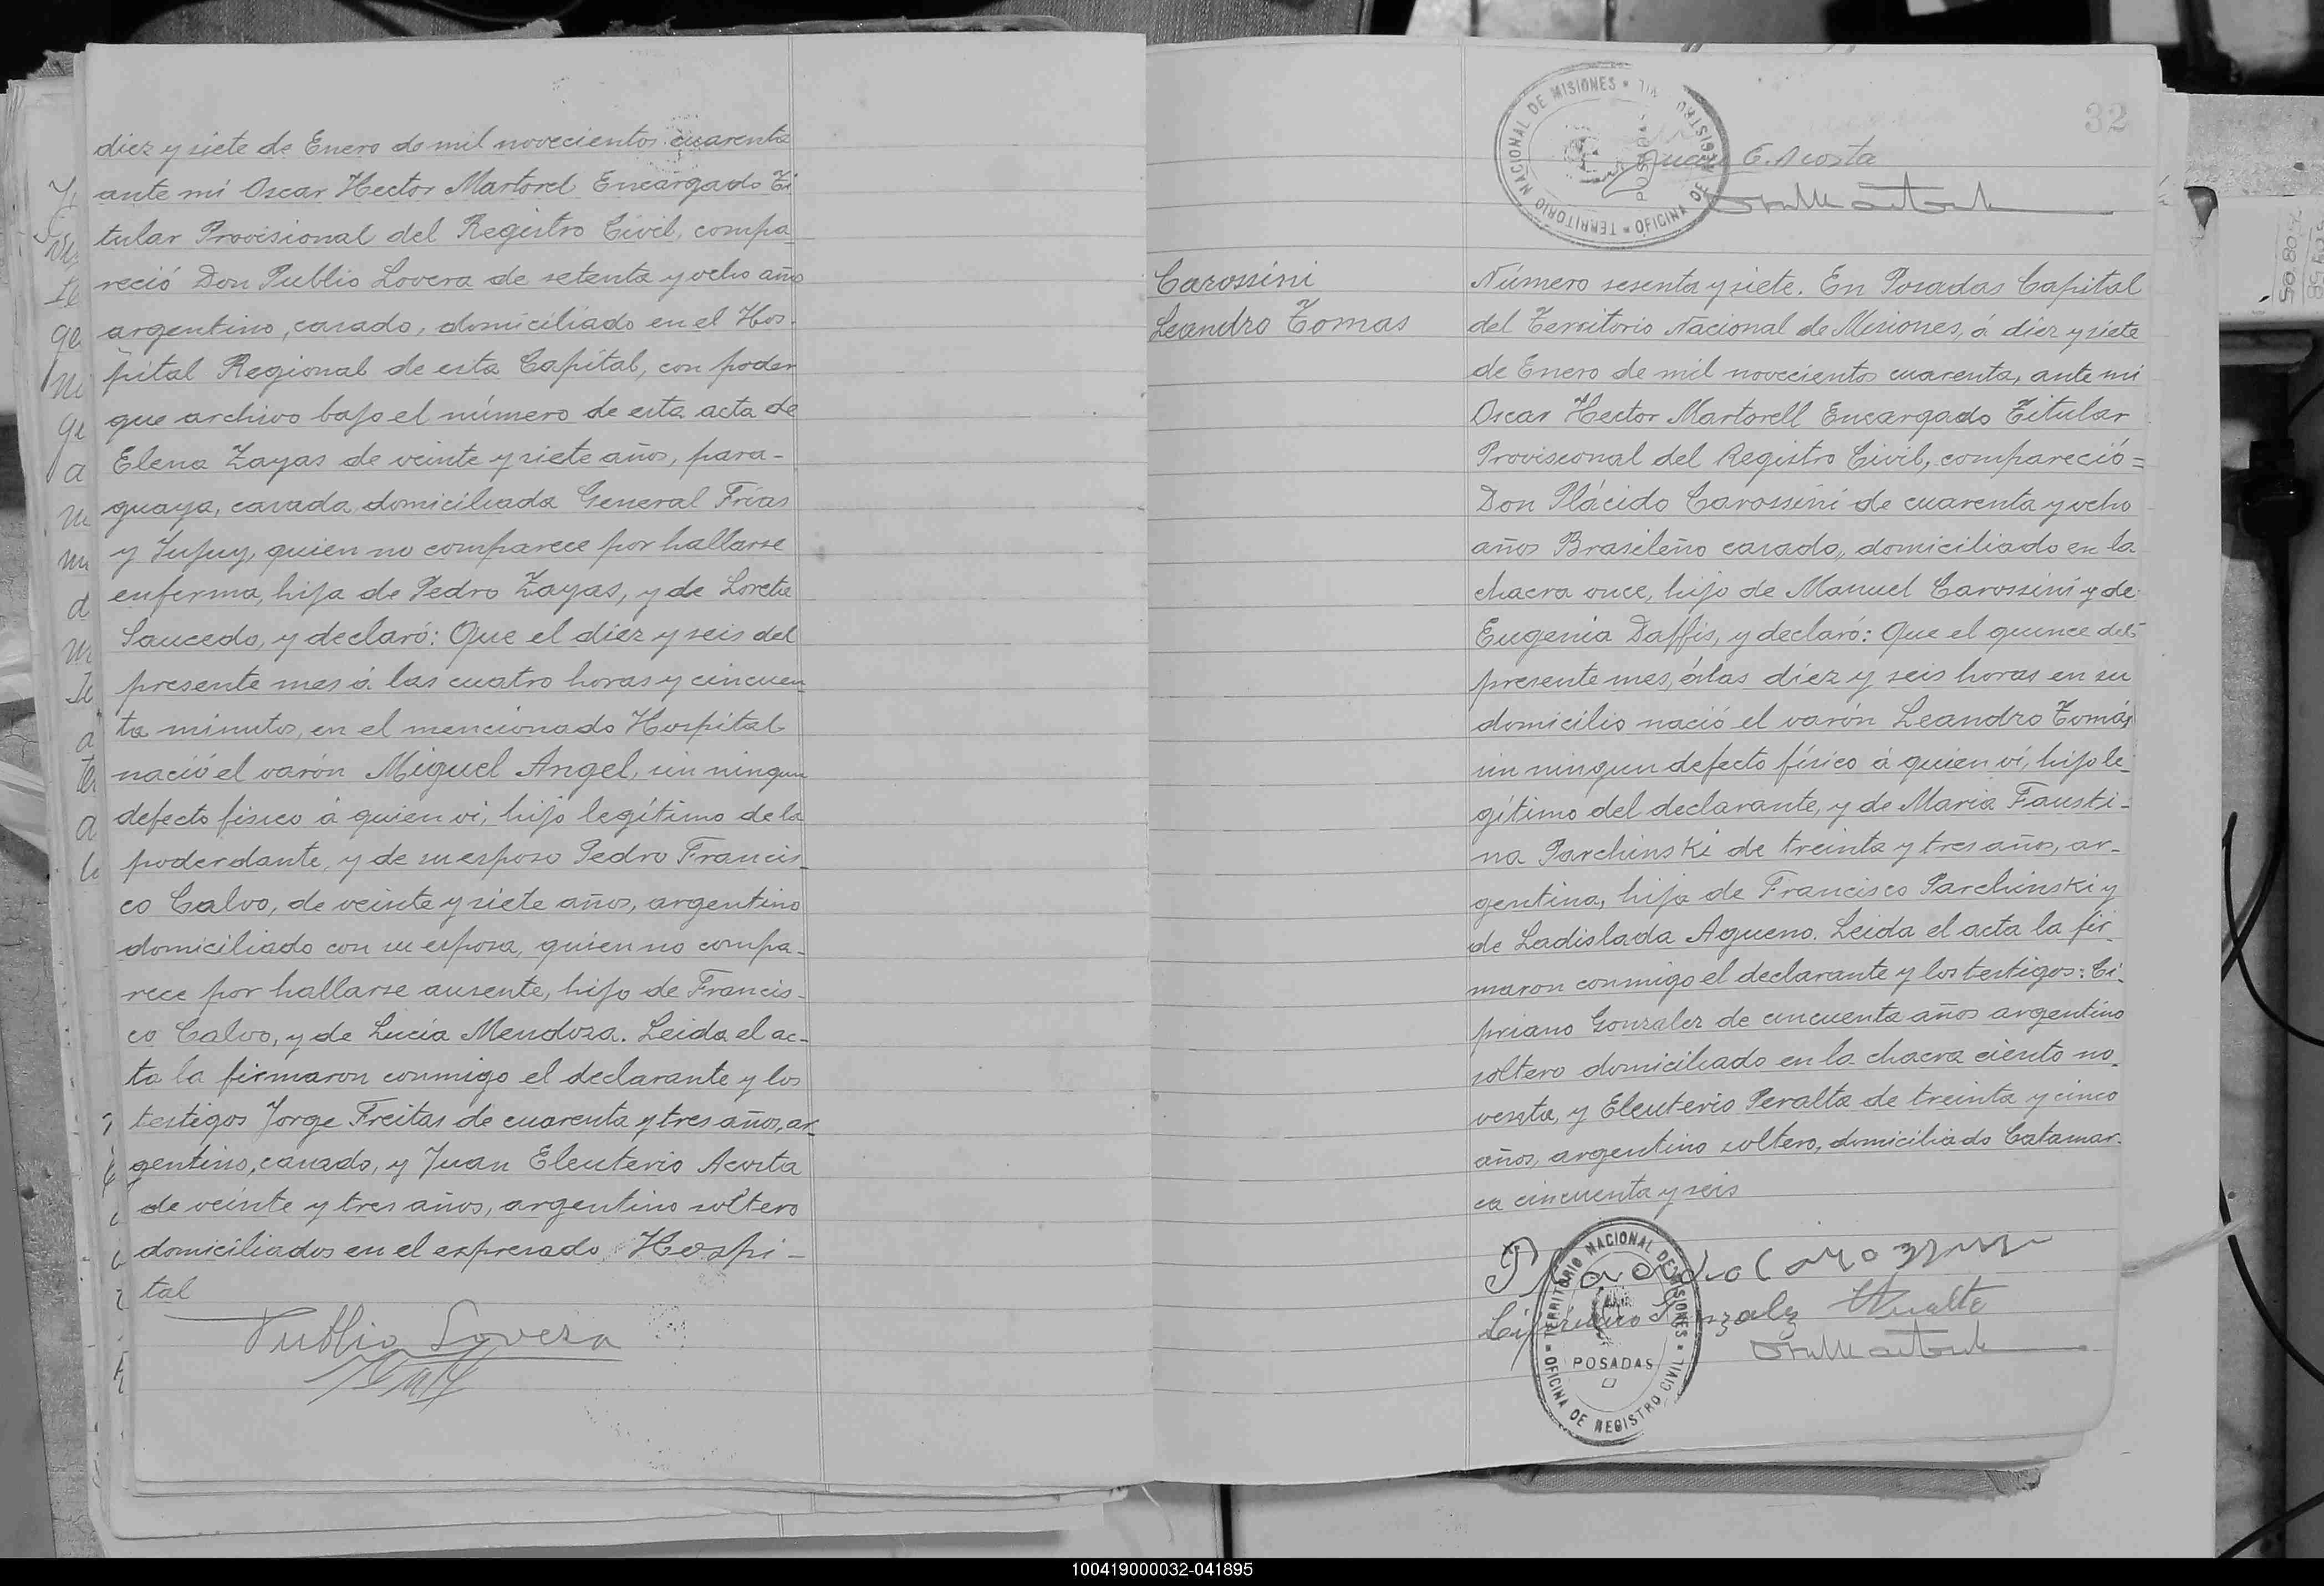 diez y siete de Enero de mil novecientos cuarenta
ante mí Oscar Hector Martorel Encargado Ti
tular Provisional del Registro Civil, compa_
reció Don Publio Lovera de setenta y ocho años
argentino, casado, domiciliado en el Hos-
pital Regional de esta Capital, con poder
que archivo bajo el número de esta acta de
Elena Zayas de veinte y siete años, para-
guaya, casada, domiciliada General Frías
y Jujuy, quien no comparece por hallarse
enferma, hija de Pedro Zayas, y de Loreta
Saucedo, y declaró: Que el diez y seis del
presente mes á las cuatro horas y cincuen_
ta minutos, en el mencionado Hospital
nació el varón Miguel Angel, sin ningun
defecto fisico á quien vi, hijo legítimo de la
poderdante, y de su esposo Pedro Francis_
co Calvo, de veinte y siete años, argentino
domiciliado con su esposa, quien no compa-
rece por hallarse ausente, hijo de Francis-
co Calvo, y de Lucía Mendoza. Leida el ac-
ta la firmaron conmigo el declarante y los
testigos Jorge Freitas de cuarenta y tres años, ar_
gentino, casado, y Juan Eleuterio Acosta
de veinte y tres años, argentino soltero
domiciliados en el expresado Hospi-
tal
Publio Lovera
32
TERRITORIO NACIONAL DE MISIONES
OFICINA DE REGISTRO CIVIL
POSADAS
Juan E. Acosta
Carossini
Leandro Tomas
Número sesenta y siete. En Posadas Capital
del Territorio Nacional de Misiones, á diez y siete
de Enero de mil novecientos cuarenta, ante mi
Oscar Hector Martorell Encargado Titular
Provisional del Registro Civil, compareció=
Don Plácido Carossini de cuarenta y ocho
años Brasileño casado, domiciliado en la
chacra once, hijo de Manuel Carossini y de
Eugenia Daffis, y declaró: Que el quince del
presente mes, á las diez y seis horas en su
domicilio nació el varón Leandro Tomás
sin ningun defecto físico á quien ví, hijo le_
gítimo del declarante, y de Maria Fausti-
na Parchinski de treinta y tres años, ar-
gentina, hija de Francisco Parchinski y
de Ladislada Agueno. Leida el acta la fir_
maron conmigo el declarante y los testigos: Ci_
priano Gonzalez de cincuenta años argentino
soltero domiciliado en la chacra ciento no_
venta, y Eleuterio Peralta de treinta y cinco
años, argentino soltero, domiciliado Catamar-
ca cincuenta y seis
TERRITORIO NACIONAL DE MISIONES
OFICINA DE REGISTRO CIVIL
POSADAS
100419000032-041895